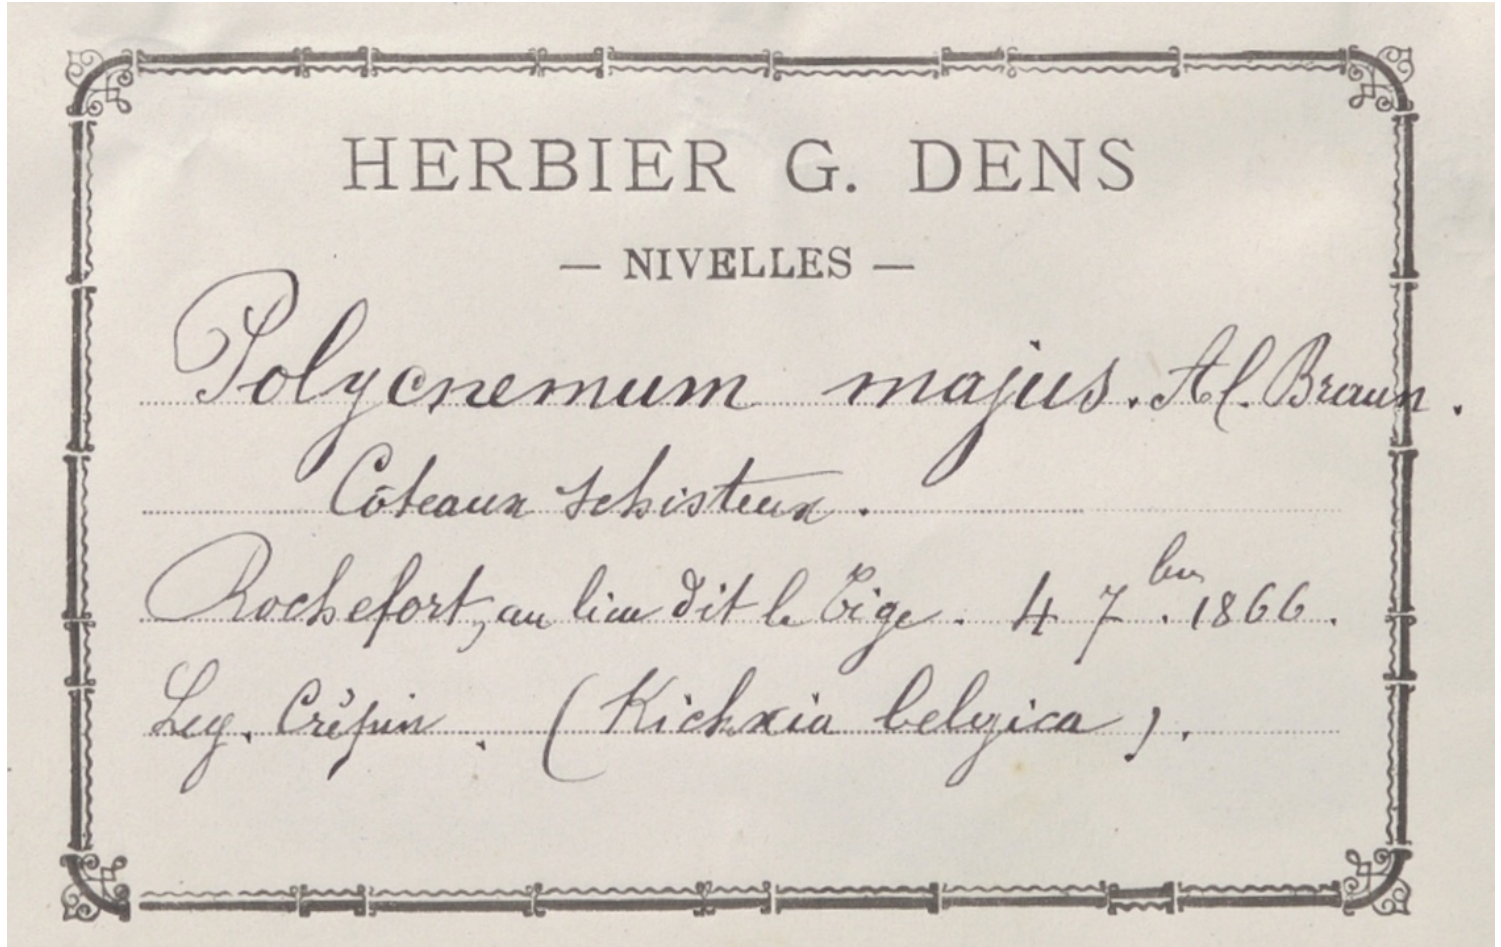 HERBIER G. DENS
— NIVELLES —
Polycnemum majus. Al. Braun.
Côteaux schisteux.
Rochefort, au lieu dit le Tige. 4 7bre. 1866.
Leg. Crépin. (Kickxia belgica).